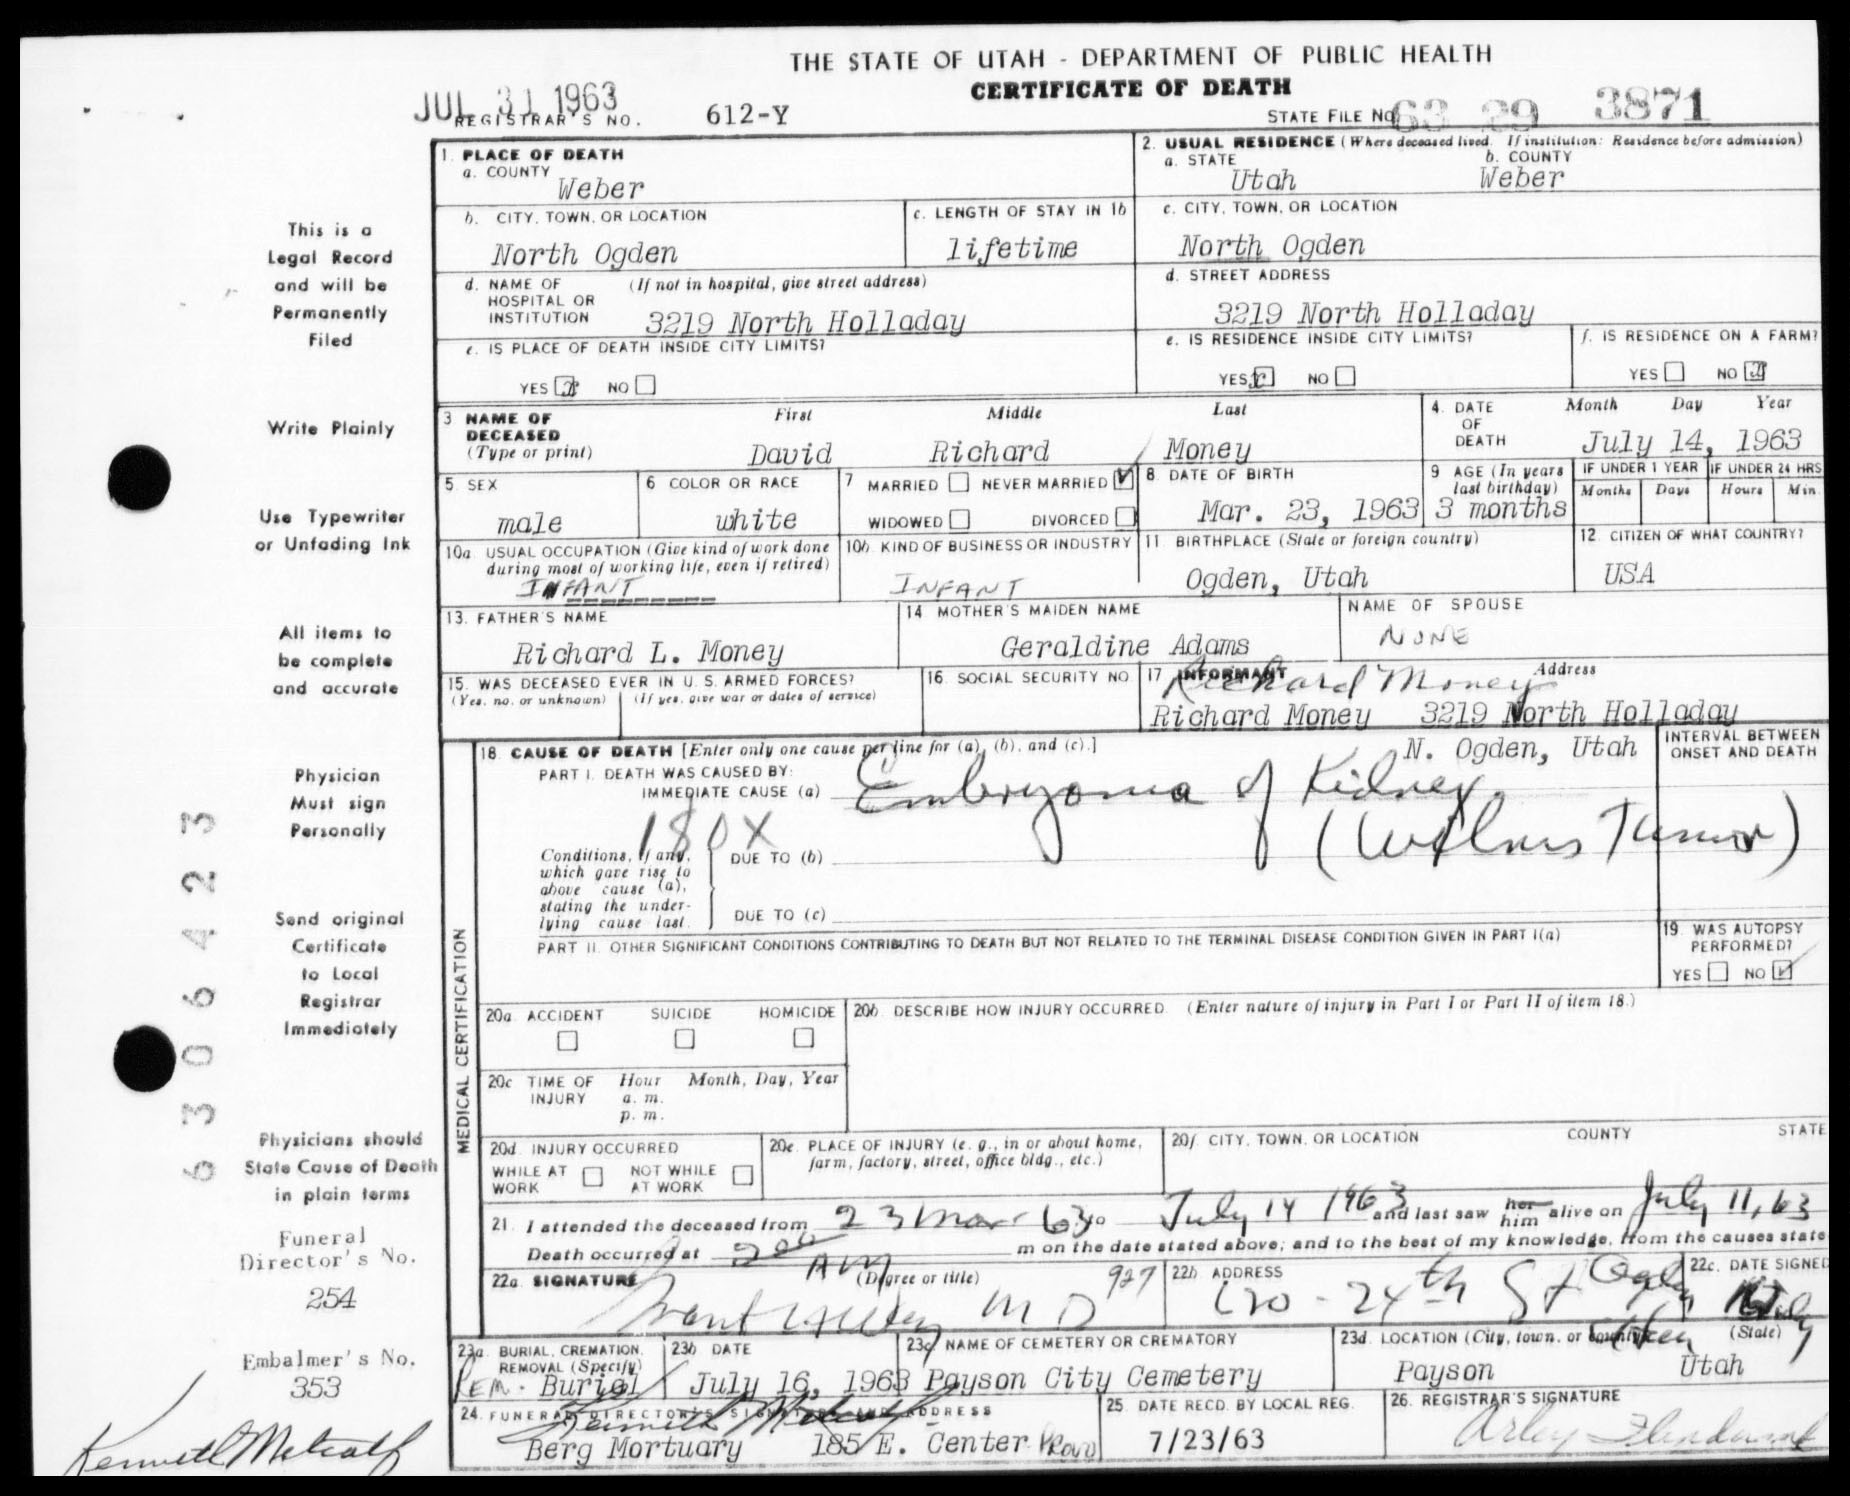 THE STATE OF UTAH - DEPARTMENT OF PUBLIC HEALTH
CERTIFICATE OF DEATH
JUL 31 1963
REGISTRAR'S NO. 612-Y
STATE FILE NO. 63 29 3871
1. PLACE OF DEATH
a. COUNTY
Weber
2. USUAL RESIDENCE (Where deceased lived. If institution: Residence before admission)
a. STATE b. COUNTY
Utah Weber
b. CITY, TOWN, OR LOCATION
North Ogden
c. LENGTH OF STAY IN 1b
lifetime
c. CITY, TOWN, OR LOCATION
North Ogden
d. NAME OF HOSPITAL OR INSTITUTION (If not in hospital, give street address)
3219 North Holladay
d. STREET ADDRESS
3219 North Holladay
e. IS PLACE OF DEATH INSIDE CITY LIMITS?
YES x NO
e. IS RESIDENCE INSIDE CITY LIMITS?
YES x NO
f. IS RESIDENCE ON A FARM?
YES NO x
3 NAME OF DECEASED (Type or print)
First Middle Last
David Richard Money
4. DATE OF DEATH
Month Day Year
July 14, 1963
5. SEX
male
6 COLOR OR RACE
white
7 MARRIED NEVER MARRIED ✓
WIDOWED DIVORCED
8. DATE OF BIRTH
Mar. 23, 1963
9 AGE (In years last birthday)
3 months
IF UNDER 1 YEAR
Months Days
IF UNDER 24 HRS
Hours Min.
10a USUAL OCCUPATION (Give kind of work done during most of working life, even if retired)
INFANT
10b. KIND OF BUSINESS OR INDUSTRY
INFANT
11. BIRTHPLACE (State or foreign country)
Ogden, Utah
12. CITIZEN OF WHAT COUNTRY?
USA
13. FATHER'S NAME
Richard L. Money
14 MOTHER'S MAIDEN NAME
Geraldine Adams
NAME OF SPOUSE
NONE
15. WAS DECEASED EVER IN U. S. ARMED FORCES?
(Yes, no, or unknown) (If yes, give war or dates of service)
16. SOCIAL SECURITY NO.
17 INFORMANT Address
Richard Money
Richard Money 3219 North Holladay
N. Ogden, Utah
MEDICAL CERTIFICATION
18. CAUSE OF DEATH [Enter only one cause per line for (a), (b), and (c).]
PART I. DEATH WAS CAUSED BY:
IMMEDIATE CAUSE (a) Embryoma of Kidney
(Wilms Tumor)
180X
Conditions, if any, which gave rise to above cause (a), stating the underlying cause last.
DUE TO (b)
DUE TO (c)
INTERVAL BETWEEN ONSET AND DEATH
PART II. OTHER SIGNIFICANT CONDITIONS CONTRIBUTING TO DEATH BUT NOT RELATED TO THE TERMINAL DISEASE CONDITION GIVEN IN PART I(a)
19. WAS AUTOPSY PERFORMED?
YES NO ✓
20a. ACCIDENT SUICIDE HOMICIDE
20b. DESCRIBE HOW INJURY OCCURRED. (Enter nature of injury in Part I or Part II of item 18.)
20c TIME OF INJURY Hour Month, Day, Year
a. m.
p. m.
20d. INJURY OCCURRED
WHILE AT WORK NOT WHILE AT WORK
20e. PLACE OF INJURY (e. g., in or about home, farm, factory, street, office bldg., etc.)
20f. CITY, TOWN, OR LOCATION COUNTY STATE
21. I attended the deceased from 23 Mar 63 to July 14 1963 and last saw her him alive on July 11, 63
Death occurred at 2:00 AM m on the date stated above; and to the best of my knowledge, from the causes state
22a. SIGNATURE (Degree or title)
M D 927
22b. ADDRESS
24th St Ogden Utah
22c. DATE SIGNED
July
23a. BURIAL, CREMATION, REMOVAL (Specify)
REM. Burial
23b DATE
July 16, 1963
23c. NAME OF CEMETERY OR CREMATORY
Payson City Cemetery
23d. LOCATION (City, town, or county) (State)
Payson Utah
24. FUNERAL DIRECTOR'S SIGNATURE AND ADDRESS
Kenneth Metcalf
Berg Mortuary 185 E. Center Provo
25. DATE RECD. BY LOCAL REG.
7/23/63
26. REGISTRAR'S SIGNATURE
Arley
This is a
Legal Record
and will be
Permanently
Filed
Write Plainly
Use Typewriter
or Unfading Ink
All items to
be complete
and accurate
Physician
Must sign
Personally
Send original
Certificate
to Local
Registrar
Immediately
Physicians should
State Cause of Death
in plain terms
Funeral
Director's No.
254
Embalmer's No.
353
Kenneth Metcalf
6306423